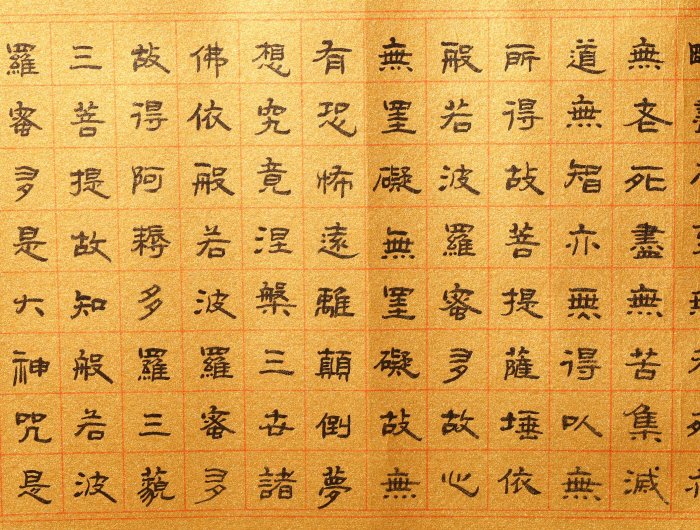 無老死盡無苦集滅
道無智亦無得以無
所得故菩提薩埵依
般若波羅蜜多故心
無罣礙無罣礙故無
有恐怖遠離顛倒夢
想究竟涅槃三世諸
佛依般若波羅蜜多
故得阿耨多羅三藐
三菩提故知般若波
羅蜜多是大神咒是